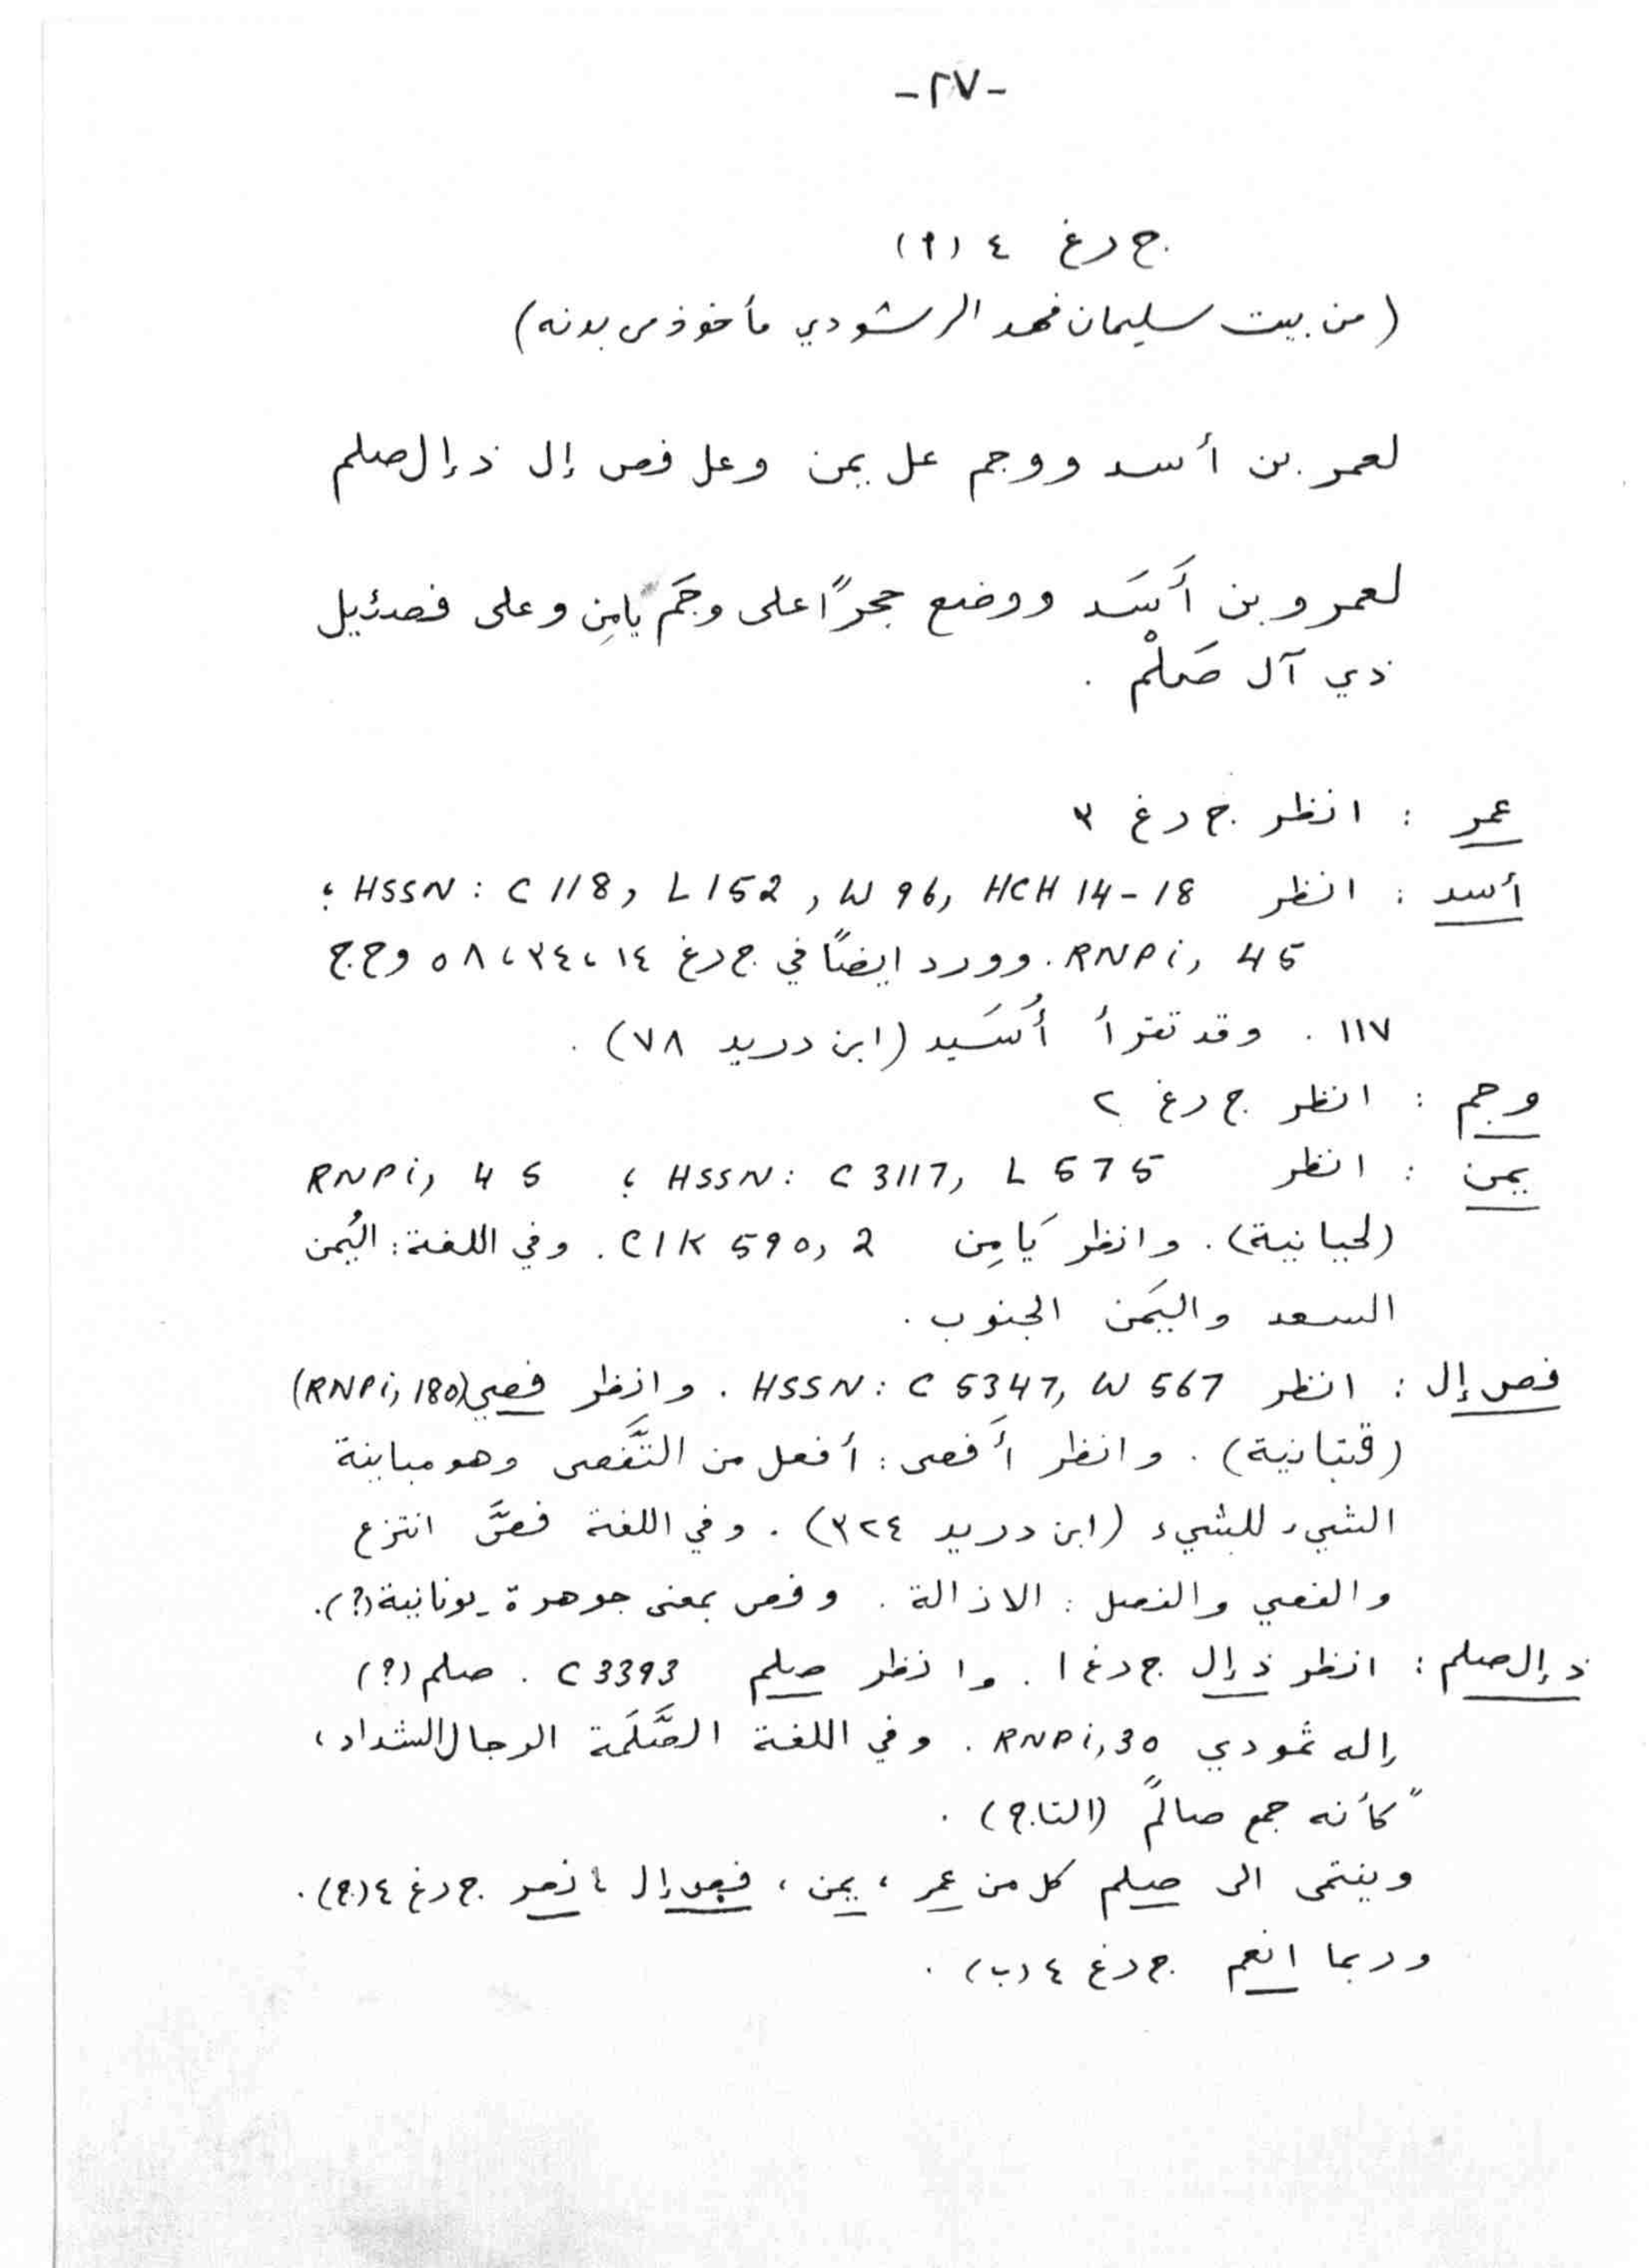 -٢٧-
ج رغ ٤ (٩)
(من بيت سليمان فهد الرشودي مأخوذ من بدنه)
لعمر بن أسد ووجم عل يمن وعل فص إل ذ إل صلم
لعمرو بن أَسَد ووضع حجرًا على وجَم يامِن وعلى فصئيل
ذي آل صَلْم .
عمر : انظر ج رغ ٣
أسد : انظر HSSN : C 118, L 152, W 96, HCH 14-18 ؛
RNPi, 45. وورد ايضًا في ج رغ ١٤، ٣٤، ٥٨ وح ج
١١٧ . وقد تقرأ أُسَيد (ابن دريد ٧٨) .
وجم : انظر ج رغ ٢
يمن : انظر HSSN : C 3117, L 575 ؛ RNPi, 45
(لحيانية) . وانظر يَامِن CIK 590, 2 . وفي اللغة : اليُمن
السعد واليَمن الجنوب .
فص إل : انظر HSSN : C 5347, W 567 . وانظر فصي (RNPi, 180)
(قتبانية) . وانظر أَفصى : أفعل من التَّفَصى وهو مباينة
الشيء للشيء (ابن دريد ٣٢٤) . وفي اللغة فصَّ انتزع
والفصي والفصل : الازالة . وفص بمعنى جوهرة - يونانية (؟) .
ذ إل صلم : انظر ذ إل ج رغ ١ . وانظر صلم C 3393 . صلم (؟)
إله ثمودي RNPi, 30 . وفي اللغة الصَّلَمة الرجال الشداد ،
"كأنه جمع صالم" (التاج) .
وينتمى الى صلم كل من عمر ، يمن ، فص إل ، نصر ج رغ ٤ (ج) .
وربما انعم ج رغ ٤ (ب) .